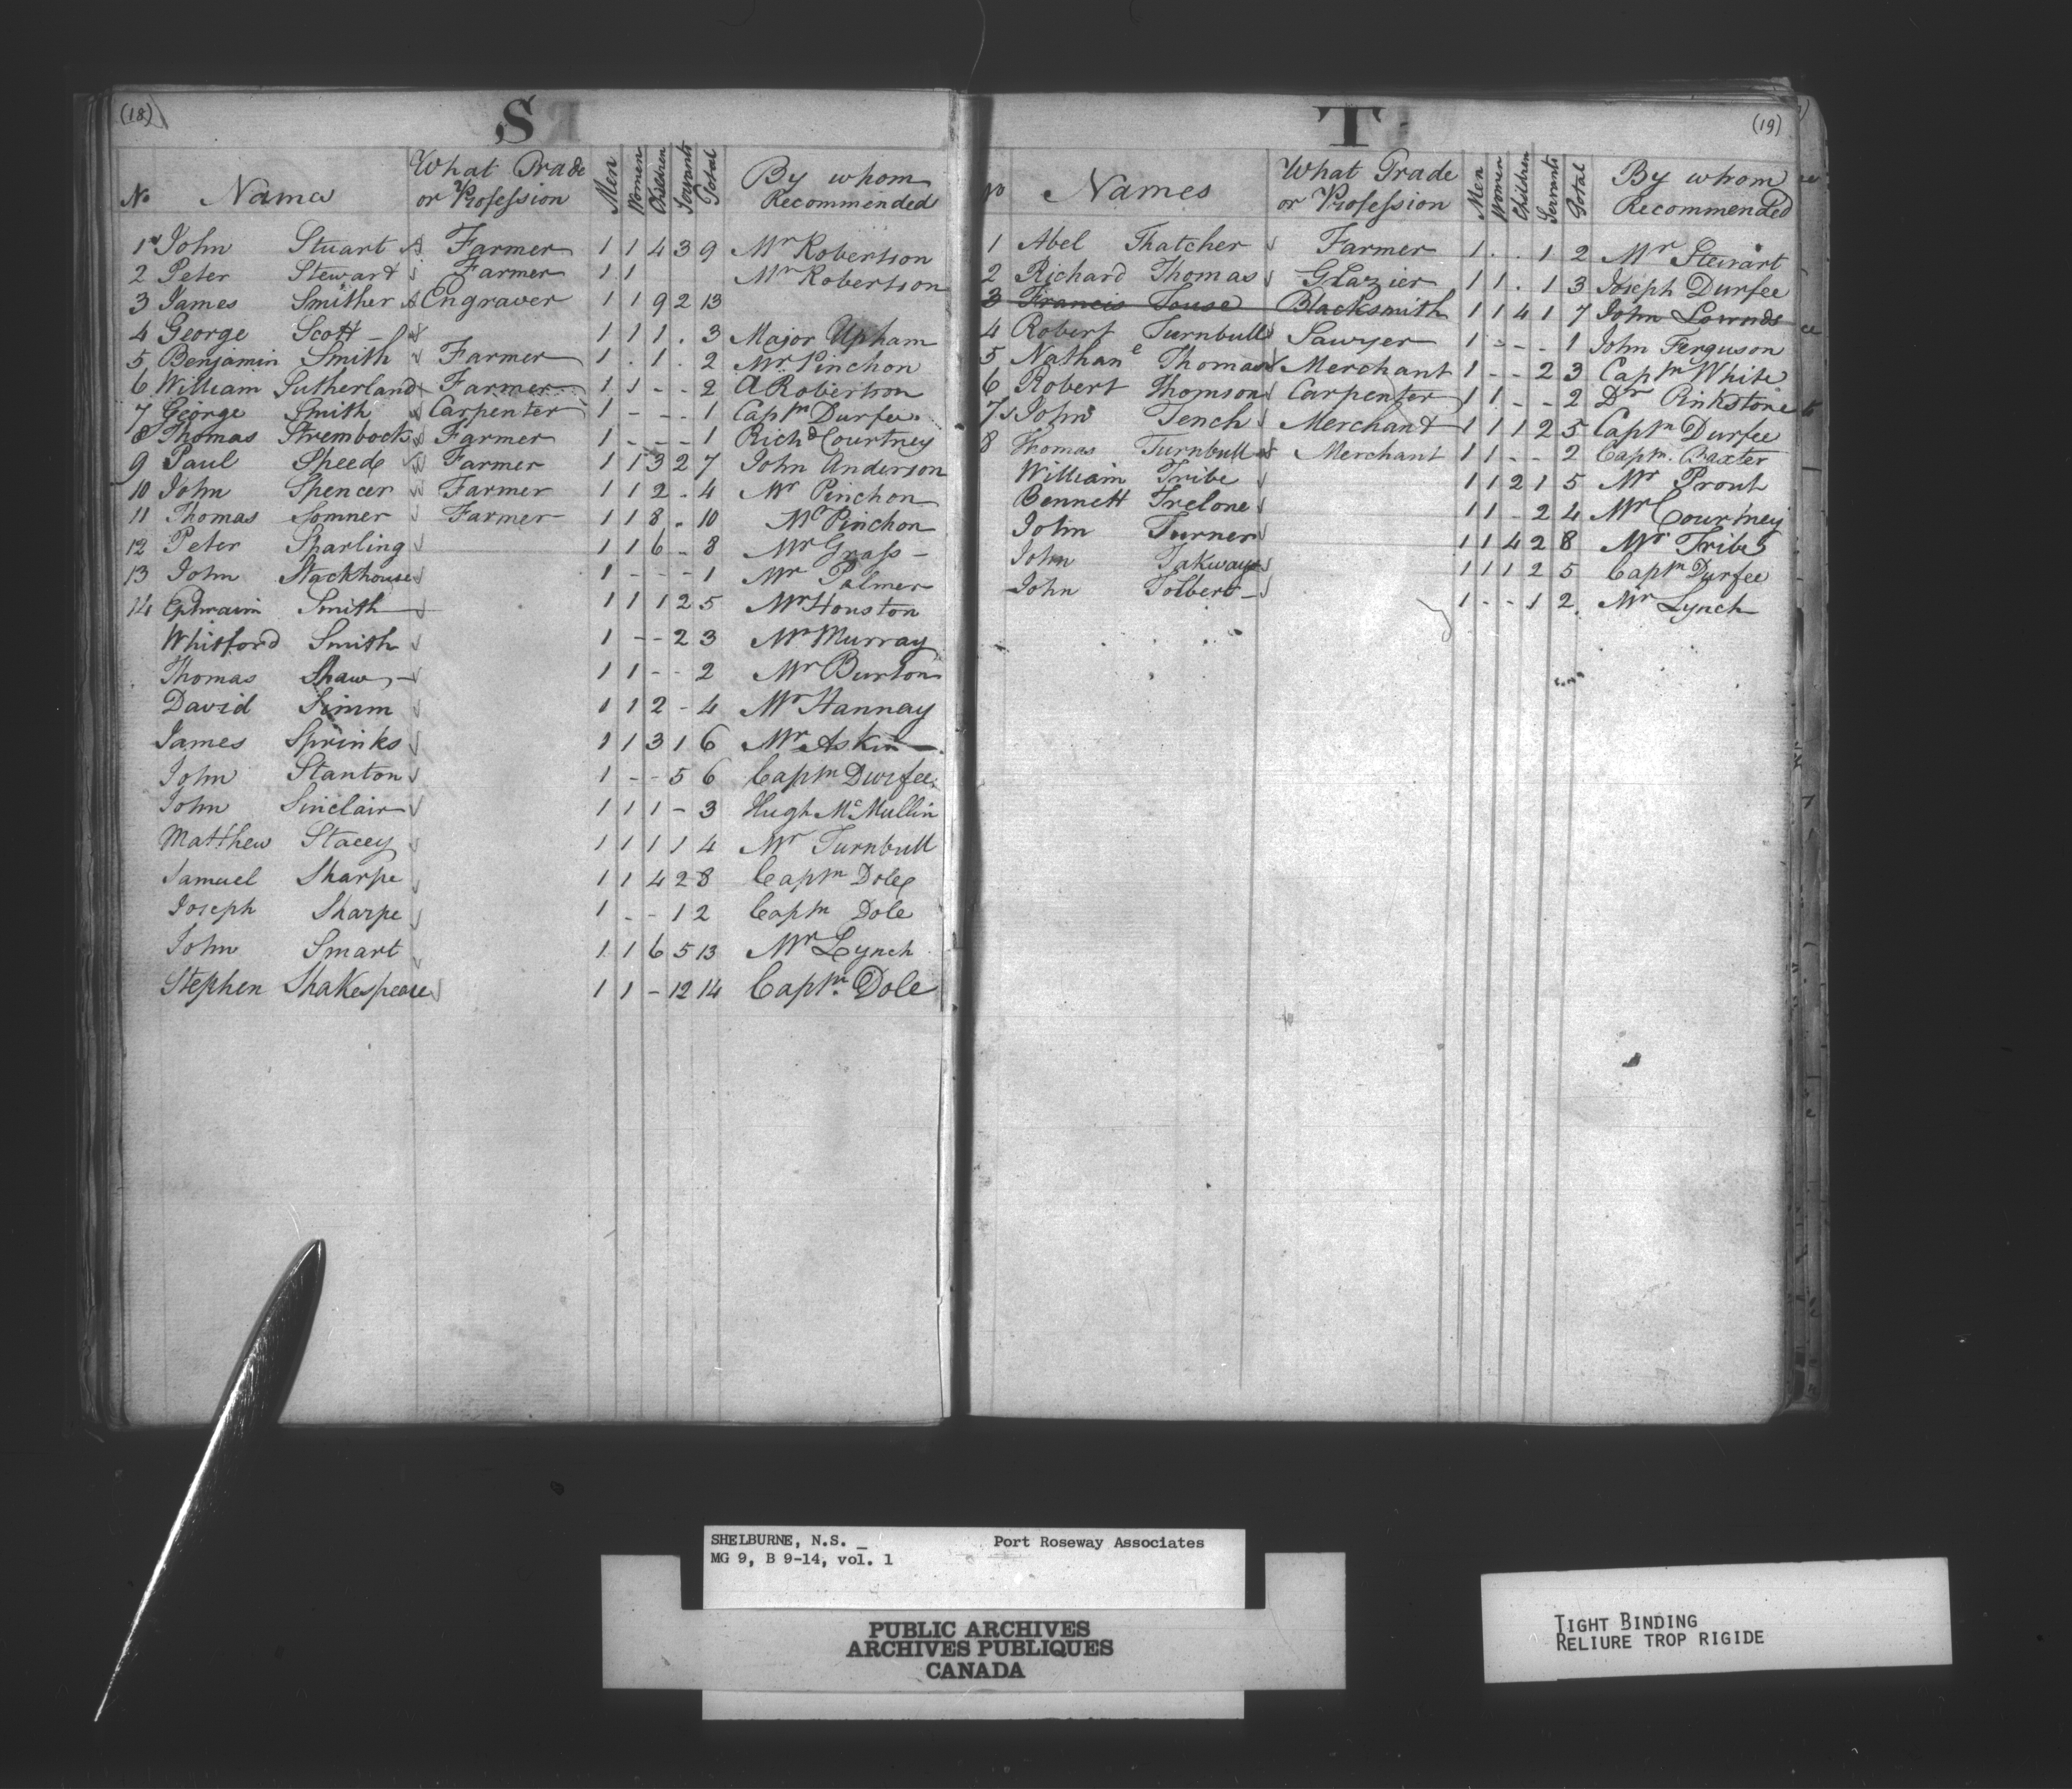 (18)
S
No Names What Trade or Profession Men Women Children Servants Total By whom Recommended
1 John Stuart Farmer 1 1 4 3 9 Mr Robertson
2 Peter Steward Farmer 1 1 Mr Robertson
3 James Smither Engraver 1 1 9 2 13
4 George Scott 1 1 1 . 3 Major Upham
5 Benjamin Smith Farmer 1 . 1 . 2 Mr Pinchon
6 William Sutherland Farmer 1 1 - - 2 A Robertson
7 George Smith Carpenter 1 - - - 1 Captn Durfee
8 Thomas Strembock Farmer 1 - - - 1 Richd Courtney
9 Paul Speed Farmer 1 1 3 2 7 John Anderson
10 John Spencer Farmer 1 1 2 - 4 Mr Pinchon
11 Thomas Somner Farmer 1 1 8 . 10 Mr Pinchon
12 Peter Sparling 1 1 6 - 8 Mr Grass
13 John Stackhouse 1 - - - 1 Mr Palmer
14 Ephraim Smith 1 1 1 2 5 Mr Houston
Whitford Smith 1 - - 2 3 Mr Murray
Thomas Shaw 1 1 - - 2 Mr Burton
David Simm 1 1 2 - 4 Mr Hannay
James Sprinks 1 1 3 1 6 Mr Askin
John Stanton 1 - - 5 6 Captn Durfee
John Sinclair 1 1 1 - 3 Hugh McMullin
Matthew Stacey 1 1 1 1 4 Mr Turnbull
Samuel Sharpe 1 1 4 2 8 Captn Dole
Joseph Sharpe 1 - - 1 2 Captn Dole
John Smart 1 1 6 5 13 Mr Lynch
Stephen Shakespeare 1 1 - 12 14 Captn. Dole
(19)
T
No Names What Trade or Profession Men Women Children Servants Total By whom Recommended
1 Abel Thatcher Farmer 1 . . 1 2 Mr Stewart
2 Richard Thomas Glazier 1 1 . 1 3 Joseph Durfee
3 Francis Touse Blacksmith 1 1 4 1 7 John Lownds
4 Robert Turnbull Sawyer 1 - - - 1 John Ferguson
5 Nathane Thomas Merchant 1 - - 2 3 Captn White
6 Robert Thomson Carpenter 1 1 - - 2 Dr Pinkstone
7 John Tench Merchant 1 1 1 2 5 Captn Durfee
8 Thomas Turnbull Merchant 1 1 - - 2 Captn. Baxter
William Tribe 1 1 2 1 5 Mr Prout
Bennett Trelone 1 1 - 2 4 Mr Courtney
John Turner 1 1 4 2 8 Mr Tribe
John Takways 1 1 1 2 5 Captn Durfee
John Tolbert 1 - - 1 2 Mr Lynch
SHELBURNE, N.S. _ Port Roseway Associates
MG 9, B 9-14, vol. 1
PUBLIC ARCHIVES
ARCHIVES PUBLIQUES
CANADA
TIGHT BINDING
RELIURE TROP RIGIDE